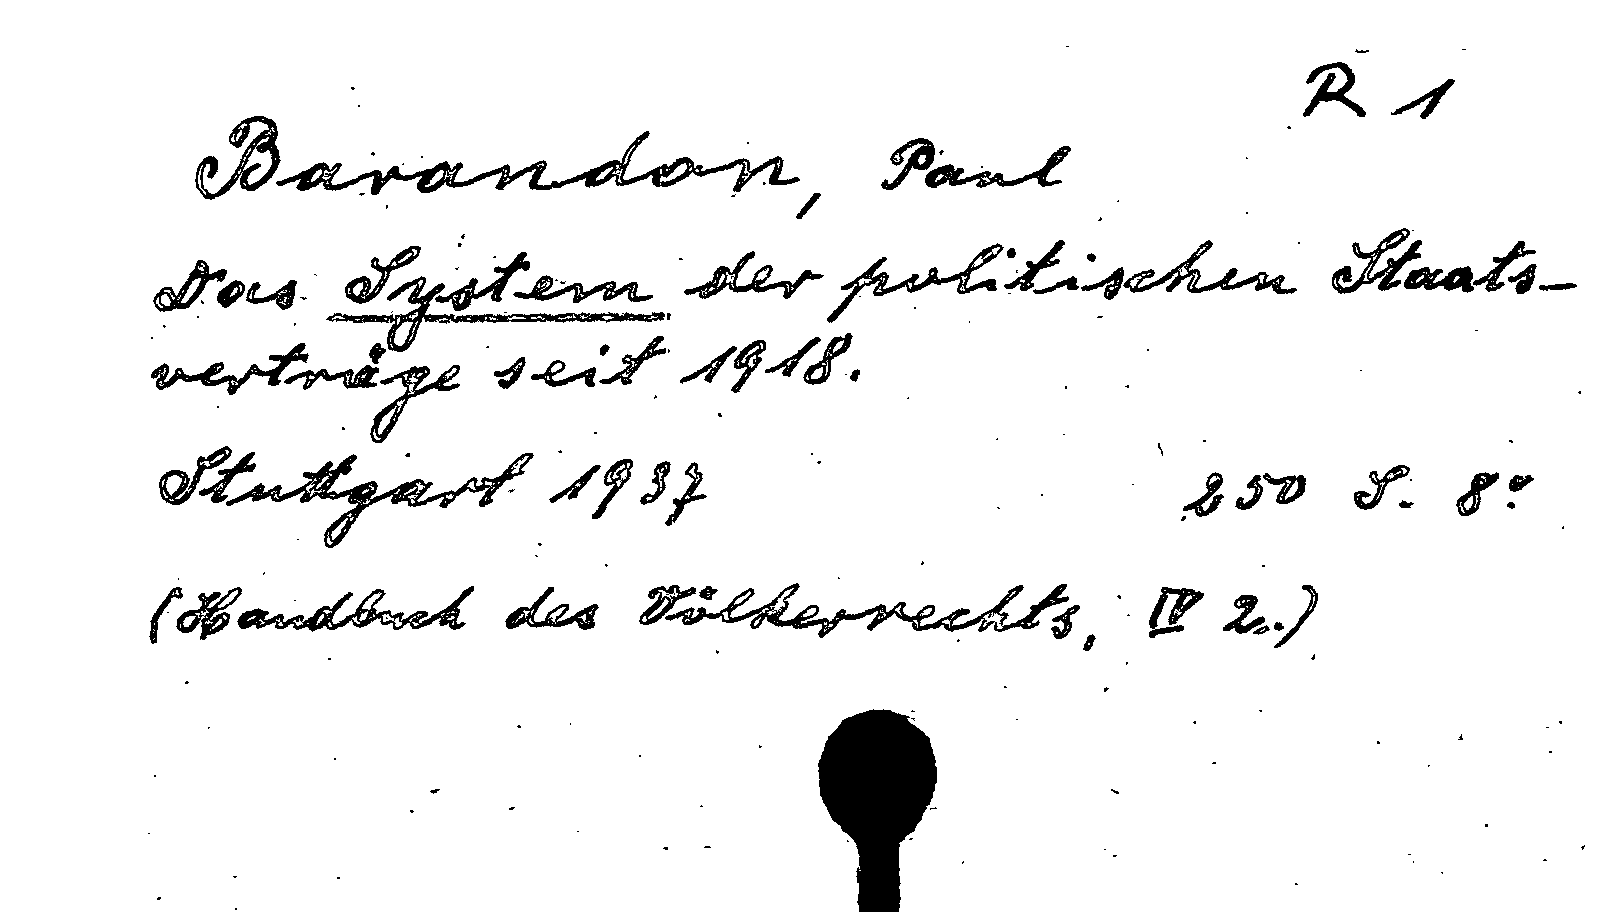 R 1
Barandon, Paul
Das System der politischen Staats-
verträge seit 1918.
Stuttgart 1937 250 S. 8°
(Handbuch des Völkerrechts, IV 2.)